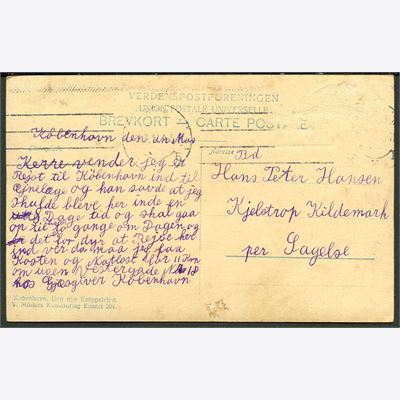 VERDENSPOSTFORENINGEN
UNION POSTALE UNIVERSELLE
BREVKORT - CARTE POSTALE
København den
Kerre vender jeg er
Rejst til København ind til
Ejnelæge og kan savde at jeg
skulde bleve her inde en
Dage tid og skal gaa
op til to gange om Dagen og
det for dyr at Rejse her
ind ver da maa jeg faa
Kosten og Natlose for 11 Kon
om ueen Vestergade No 18
hos Gjæsgiver København
Adresse
Bd
Hans Peter Hansen
Kjelstrop Kildemark
per Sagelse
København, Den nye Knippelsbro.
V. Müllers Kunstforlag Eneret 201.